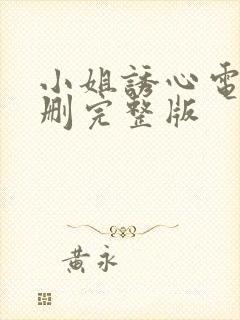 小姐誘心電
刪完整版
黃永